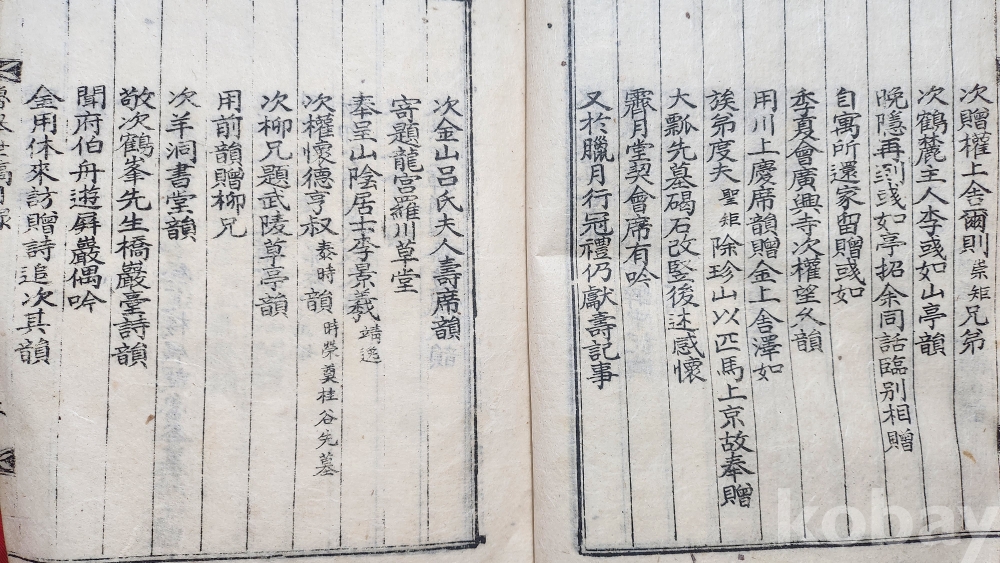 次贈權上舍爾則 崇矩 兄弟
次鶴麓主人李彧如山亭韻
晩隱再到彧如亭招余同話臨別相贈
自寓所還家留贈彧如
季賁會廣興寺次權望久韻
用川上慶席韻贈金上舍澤如
族弟度夫 聖矩 除珍山以匹馬上京故奉贈
大瓢先墓碣石改竪後述感懷
霽月堂契會席有吟
又於臘月行冠禮仍獻壽記事
次金山呂氏夫人壽席韻
寄題龍宮羅川草堂
奉呈山陰居士李景羲 靖遠
次權懷德亨叔 泰時 韻 時榮奠桂谷先墓
次柳兄題武陵草亭韻
用前韻贈柳兄
次羊洞書堂韻
敬次鶴峯先生橋巖臺詩韻
聞府伯舟遊屛巖偶吟
金用休來訪贈詩追次其韻
kobay